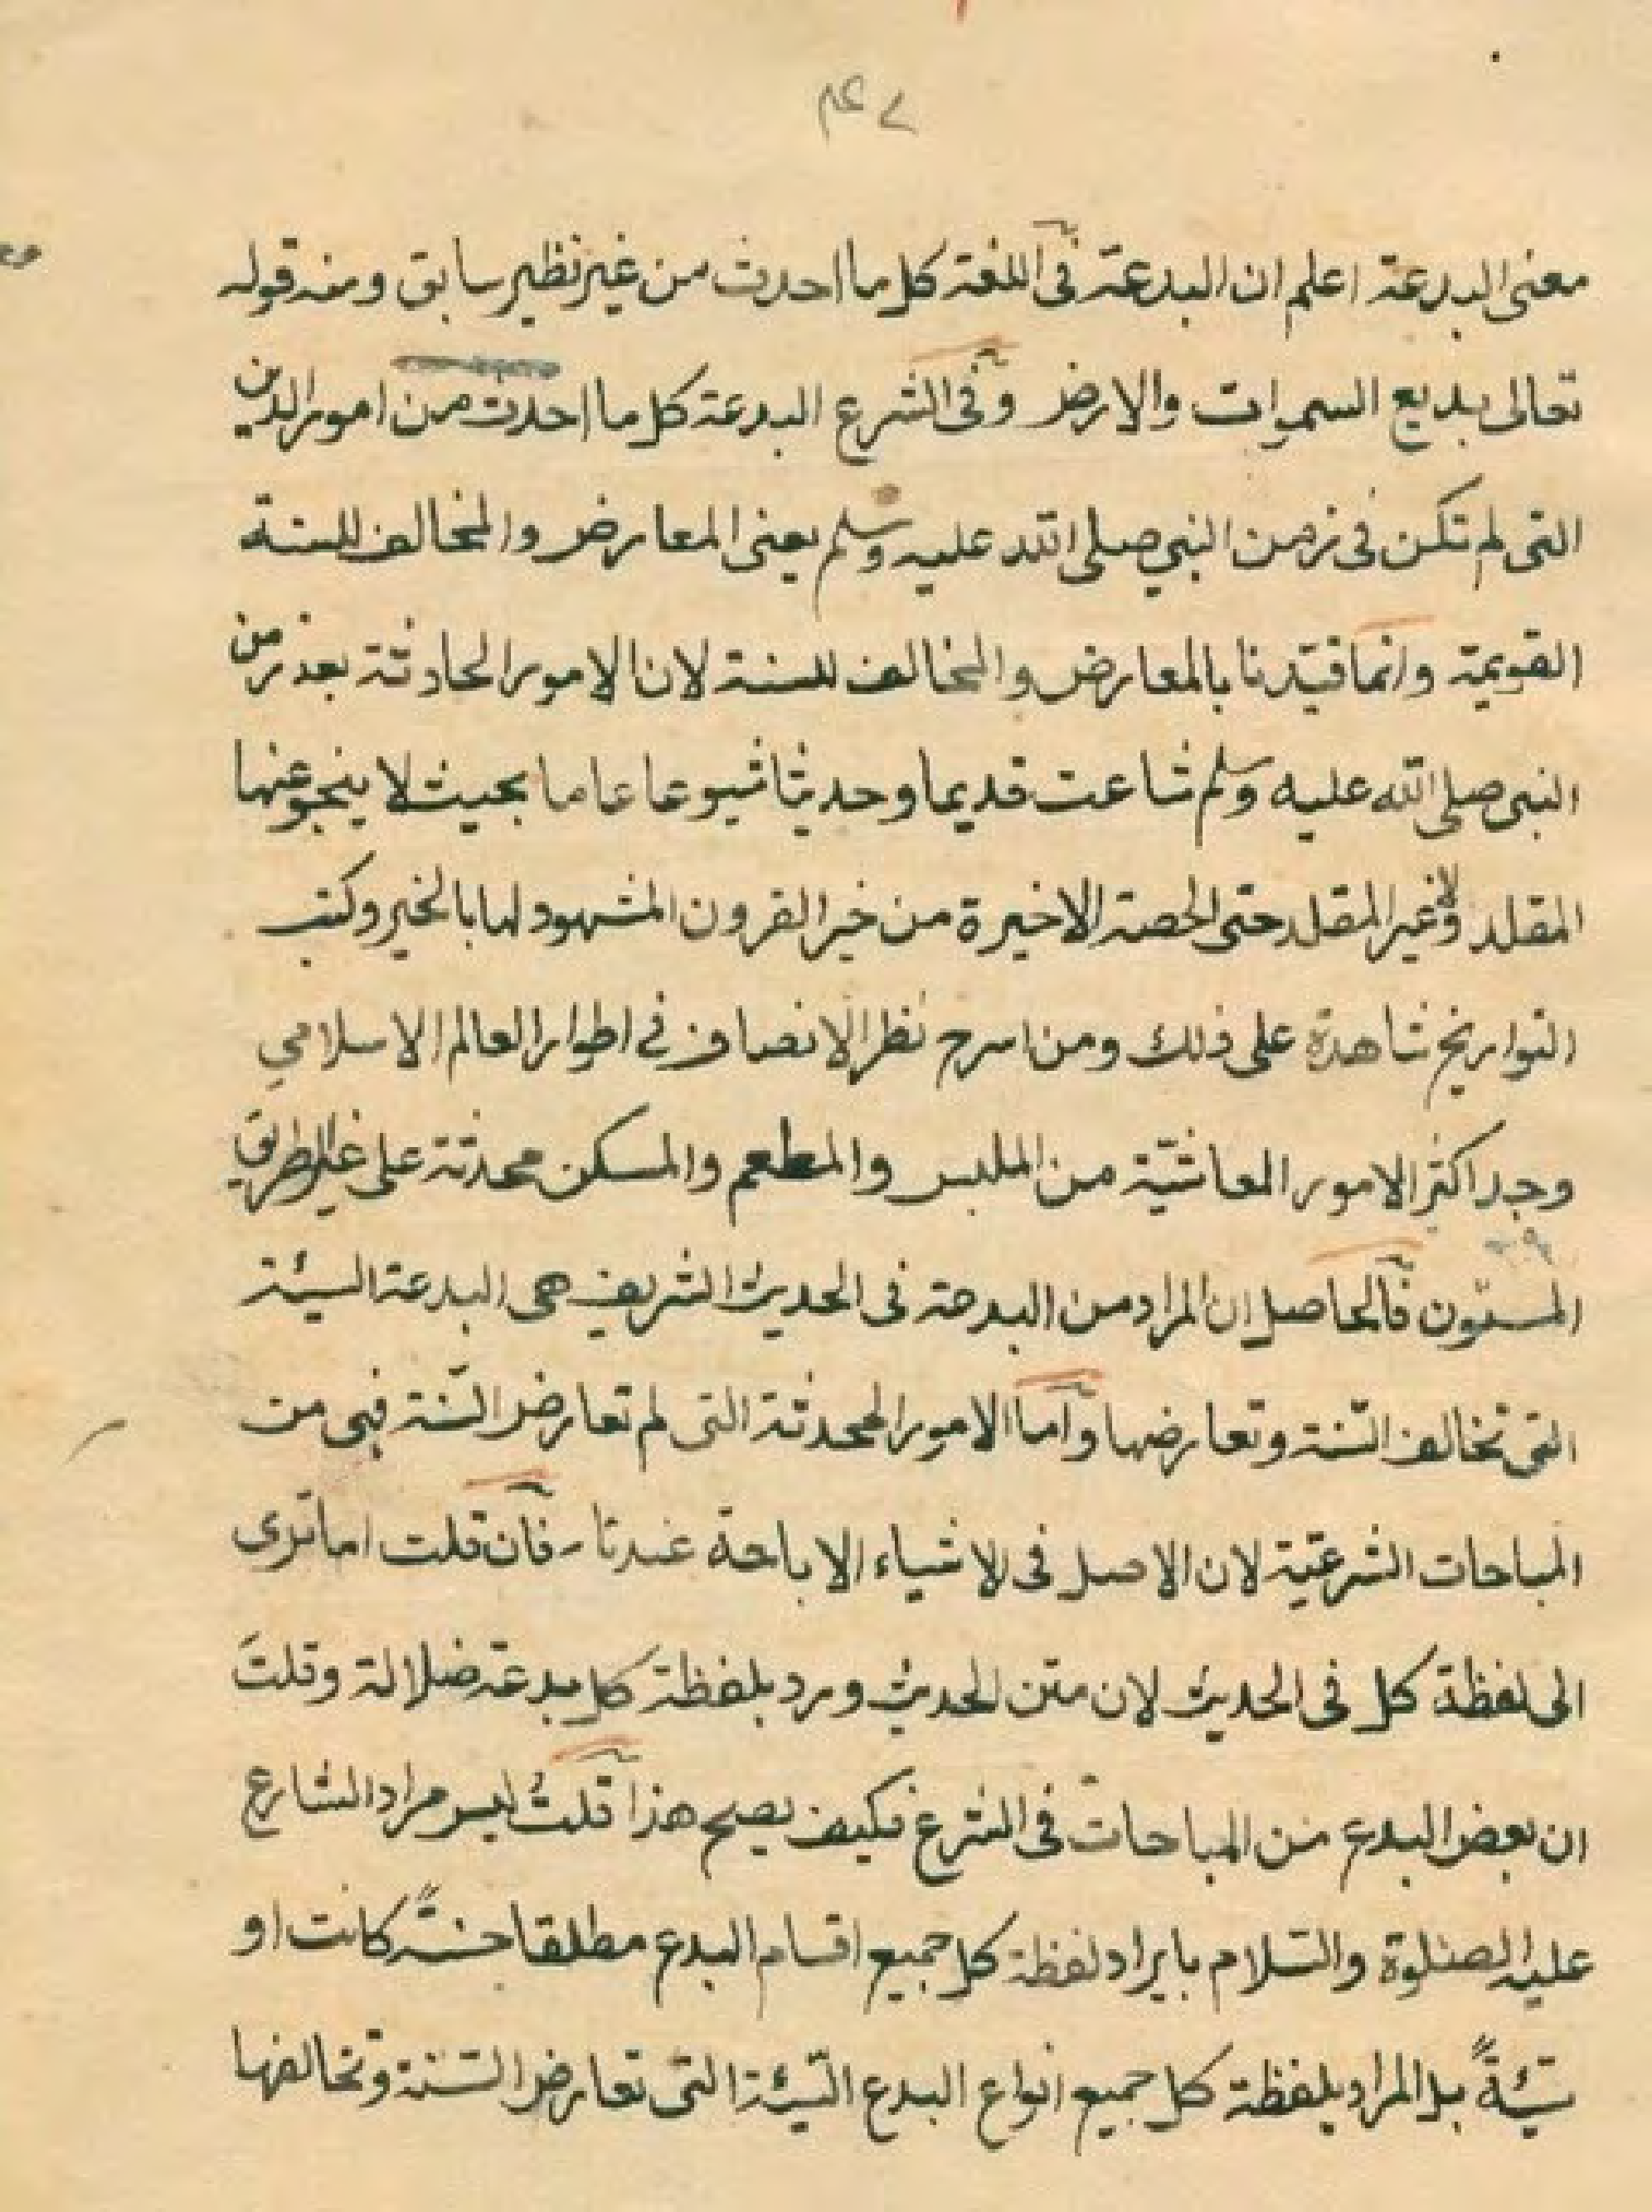 ٣٤٧
معنى البدعة اعلم ان البدعة فى اللغة كل ما احدث من غير نظير سابق ومنه قوله
تعالى بديع السموات والارض وفى الشرع البدعة كل ما احدث من امور الدين
التى لم تكن فى زمن النبي صلى الله عليه وسلم يعنى المعارض والمخالف للسنة
القويمة وانما قيّدنا بالمعارض والمخالف للسنة لان الامور الحادثة بعد زمن
النبى صلى الله عليه وسلم شاعت قديما وحديثا شيوعا عاما بحيث لا ينجو عنها
المقلد وغير المقلد حتى الحصة الاخيرة من خير القرون المشهود لها بالخير وكتب
التواريخ شاهدة على ذلك ومن اسرح نظر الانصاف فى اطوار العالم الاسلامي
وجد اكثر الامور المعاشيّة من الملبس والمطعم والمسكن محدثة على غير الطريق
المسنون فالحاصل ان المراد من البدعة فى الحديث الشريف هى البدعة السيئة
التى تخالف السّنة وتعارضها وآما الامور المحدثة التى لم تعارض السّنة فهى من
المباحات الشرعيّة لان الاصل فى الاشياء الاباحة عندنا فان قلت اما ترى
الى لفظة كل فى الحديث لان متن الحديث ورد بلفظة كل بدعة ضلالة وقلتَ
ان بعض البدع من المباحات فى الشرع فكيف يصح هذا قلتُ ليس مراد الشارع
عليه الصلوة والسّلام بايراد لفظة كل جميع اقسام البدع مطلقا حسنةً كانت او
سيّئةً بل المراد بلفظة كل جميع انواع البدع السّيئة التى تعارض السّنة وتخالفها